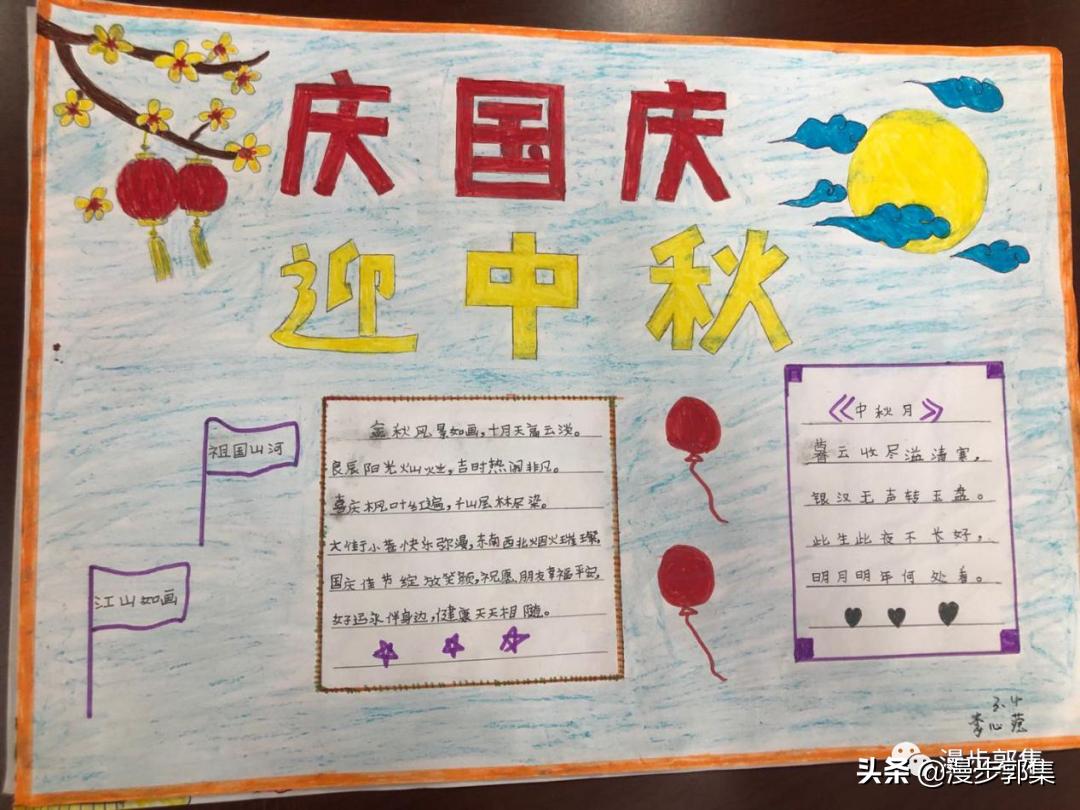 庆国庆
迎中秋
祖国山河
江山如画
金秋风景如画，十月天高云淡。
良辰阳光灿烂，吉时热闹非凡。
喜庆枫叶红遍，千山层林尽染。
大街小巷快乐弥漫，东南西北烟火璀璨，
国庆佳节绽放笑颜，祝愿朋友幸福平安，
好运永伴身边，健康天天相随。
《中秋月》
暮云收尽溢清寒，
银汉无声转玉盘。
此生此夜不长好，
明月明年何处看。
李心
漫步郭集
头条@漫步郭集